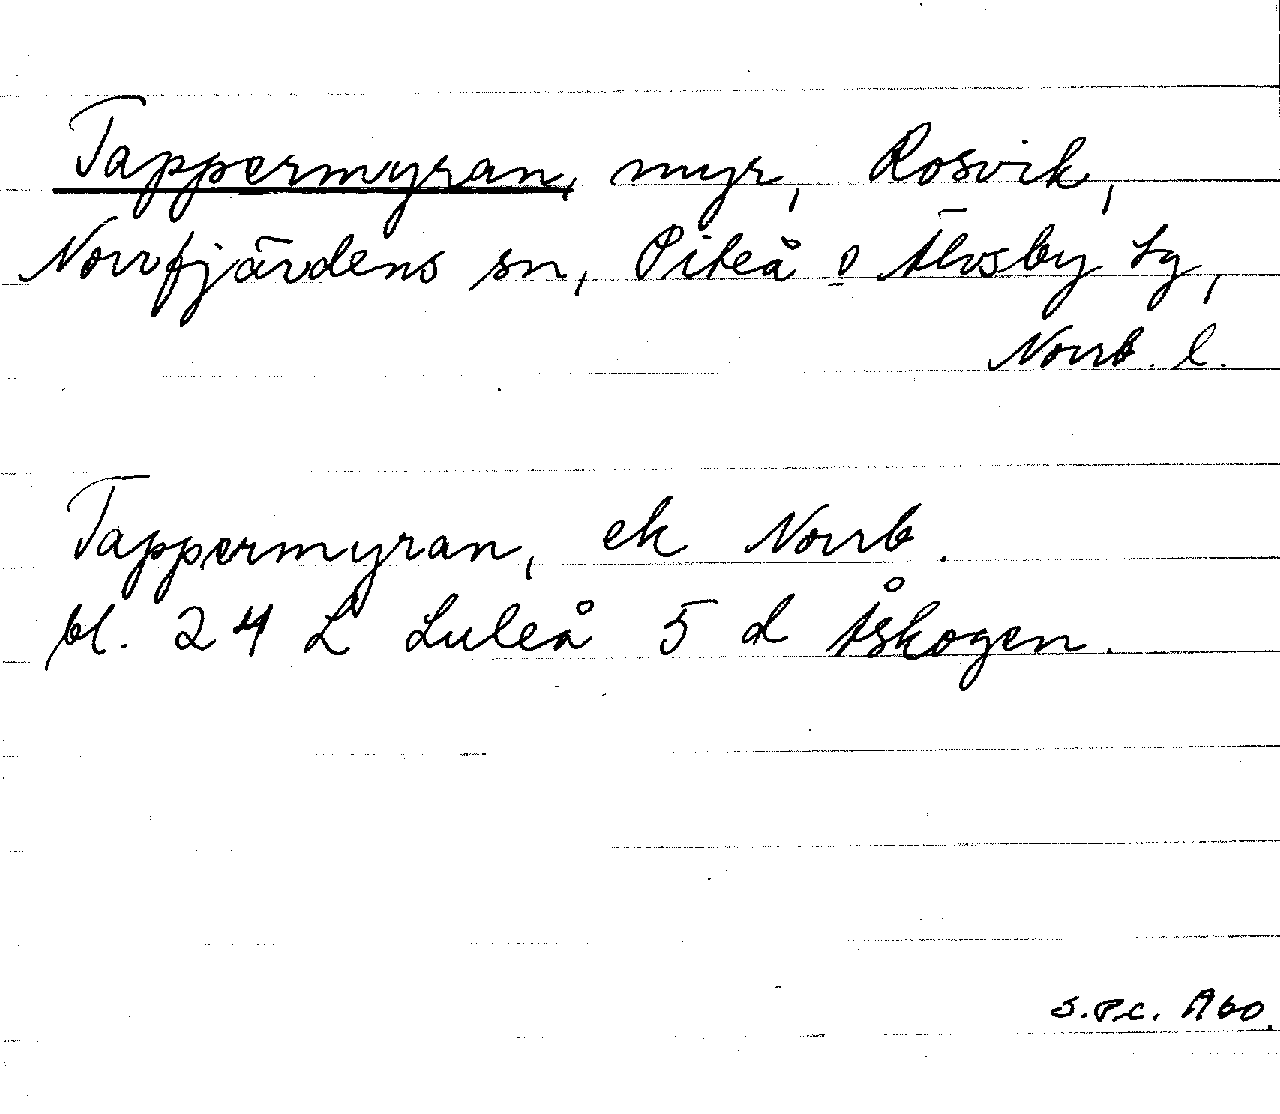 Tappermyran, myr, Rosvik,
Norrfjärdens sn, Piteå o Älvsby tg,
Norrb. l.
Tappermyran, ek Norrb.
bl. 24 L Luleå 5 d Åskogen.
S.P.C. A60.